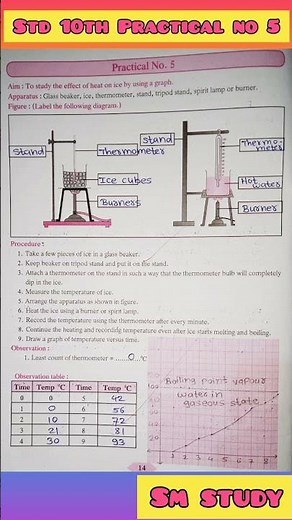 Std 10th Practical no 5
Practical No. 5
Aim : To study the effect of heat on ice by using a graph.
Apparatus : Glass beaker, ice, thermometer, stand, tripod stand, spirit lamp or burner.
Figure : (Label the following diagram.)
Stand
Thermometer
Ice cubes
Burners
Stand
Thermo-
meter
Hot
water
Burner
Procedure :
1. Take a few pieces of ice in a glass beaker.
2. Keep beaker on tripod stand and put it on the stand.
3. Attach a thermometer on the stand in such a way that the thermometer bulb will completely
dip in the ice.
4. Measure the temperature of ice.
5. Arrange the apparatus as shown in figure.
6. Heat the ice using a burner or spirit lamp.
7. Record the temperature using the thermometer after every minute.
8. Continue the heating and recording temperature even after ice starts melting and boiling.
9. Draw a graph of temperature versus time.
Observation :
1. Least count of thermometer = ......0..°C
Observation table :
Time Temp °C Time Temp °C
0 0 5 42
1 0 6 56
2 10 7 72
3 21 8 81
4 30 9 93
Boiling point vapour
water in
gaseous state
1 2 3 4 5 6 7 8
14
Sm study